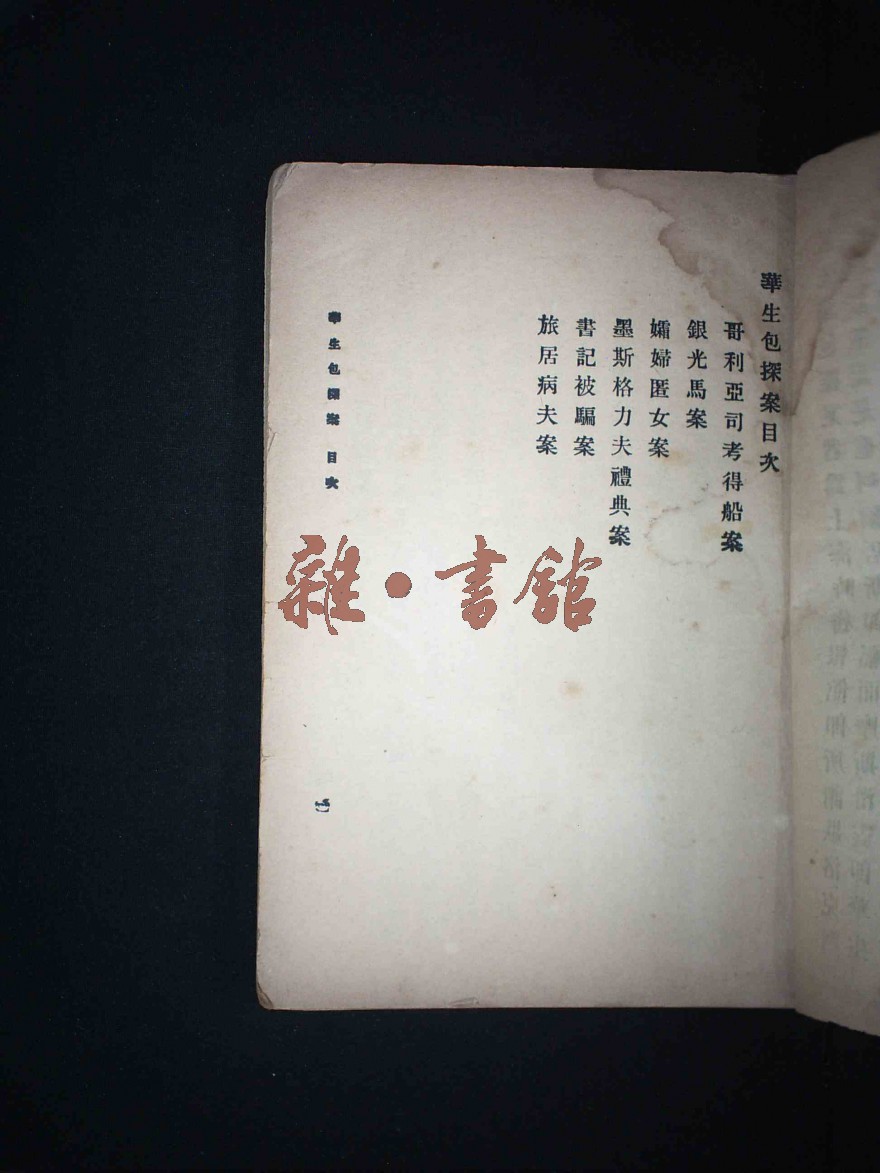 華生包探案目次
哥利亞司考得船案
銀光馬案
孀婦匿女案
墨斯格力夫禮典案
書記被騙案
旅居病夫案
華生包探案 目次
雜·書館